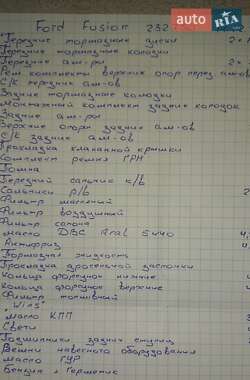 auto RIA.com
Ford Fusion 232
Передние тормозные диски 2×
Передние тормозные колодки
Передние ам-ры 2×
Рем комплекты верхних опор перед ам-ов
С/К передних ам-ов
Задние тормозные колодки
Монтажный комплект задних колодок
Задние ам-ры
Верхние опоры задних ам-ов
С/К задних ам-ов
Прокладка клапанной крышки
Комплект ремня ГРМ
Помпа
Передний сальник к/в
Сальники р/в 2
Фильтр масляный
Фильтр воздушный
Фильтр салона
масло Aral 5w40
Антифриз
Тормозная жидкость
Прокладка дросельной заслонки
Кольца форсунок нижние
Кольца форсунок верхние
Фильтр топливный
"Wins"
масло КПП
Свечи
Подшипники задних ступиц
Ремни навесного оборудования
масло ГУР
Бензин + Герметик